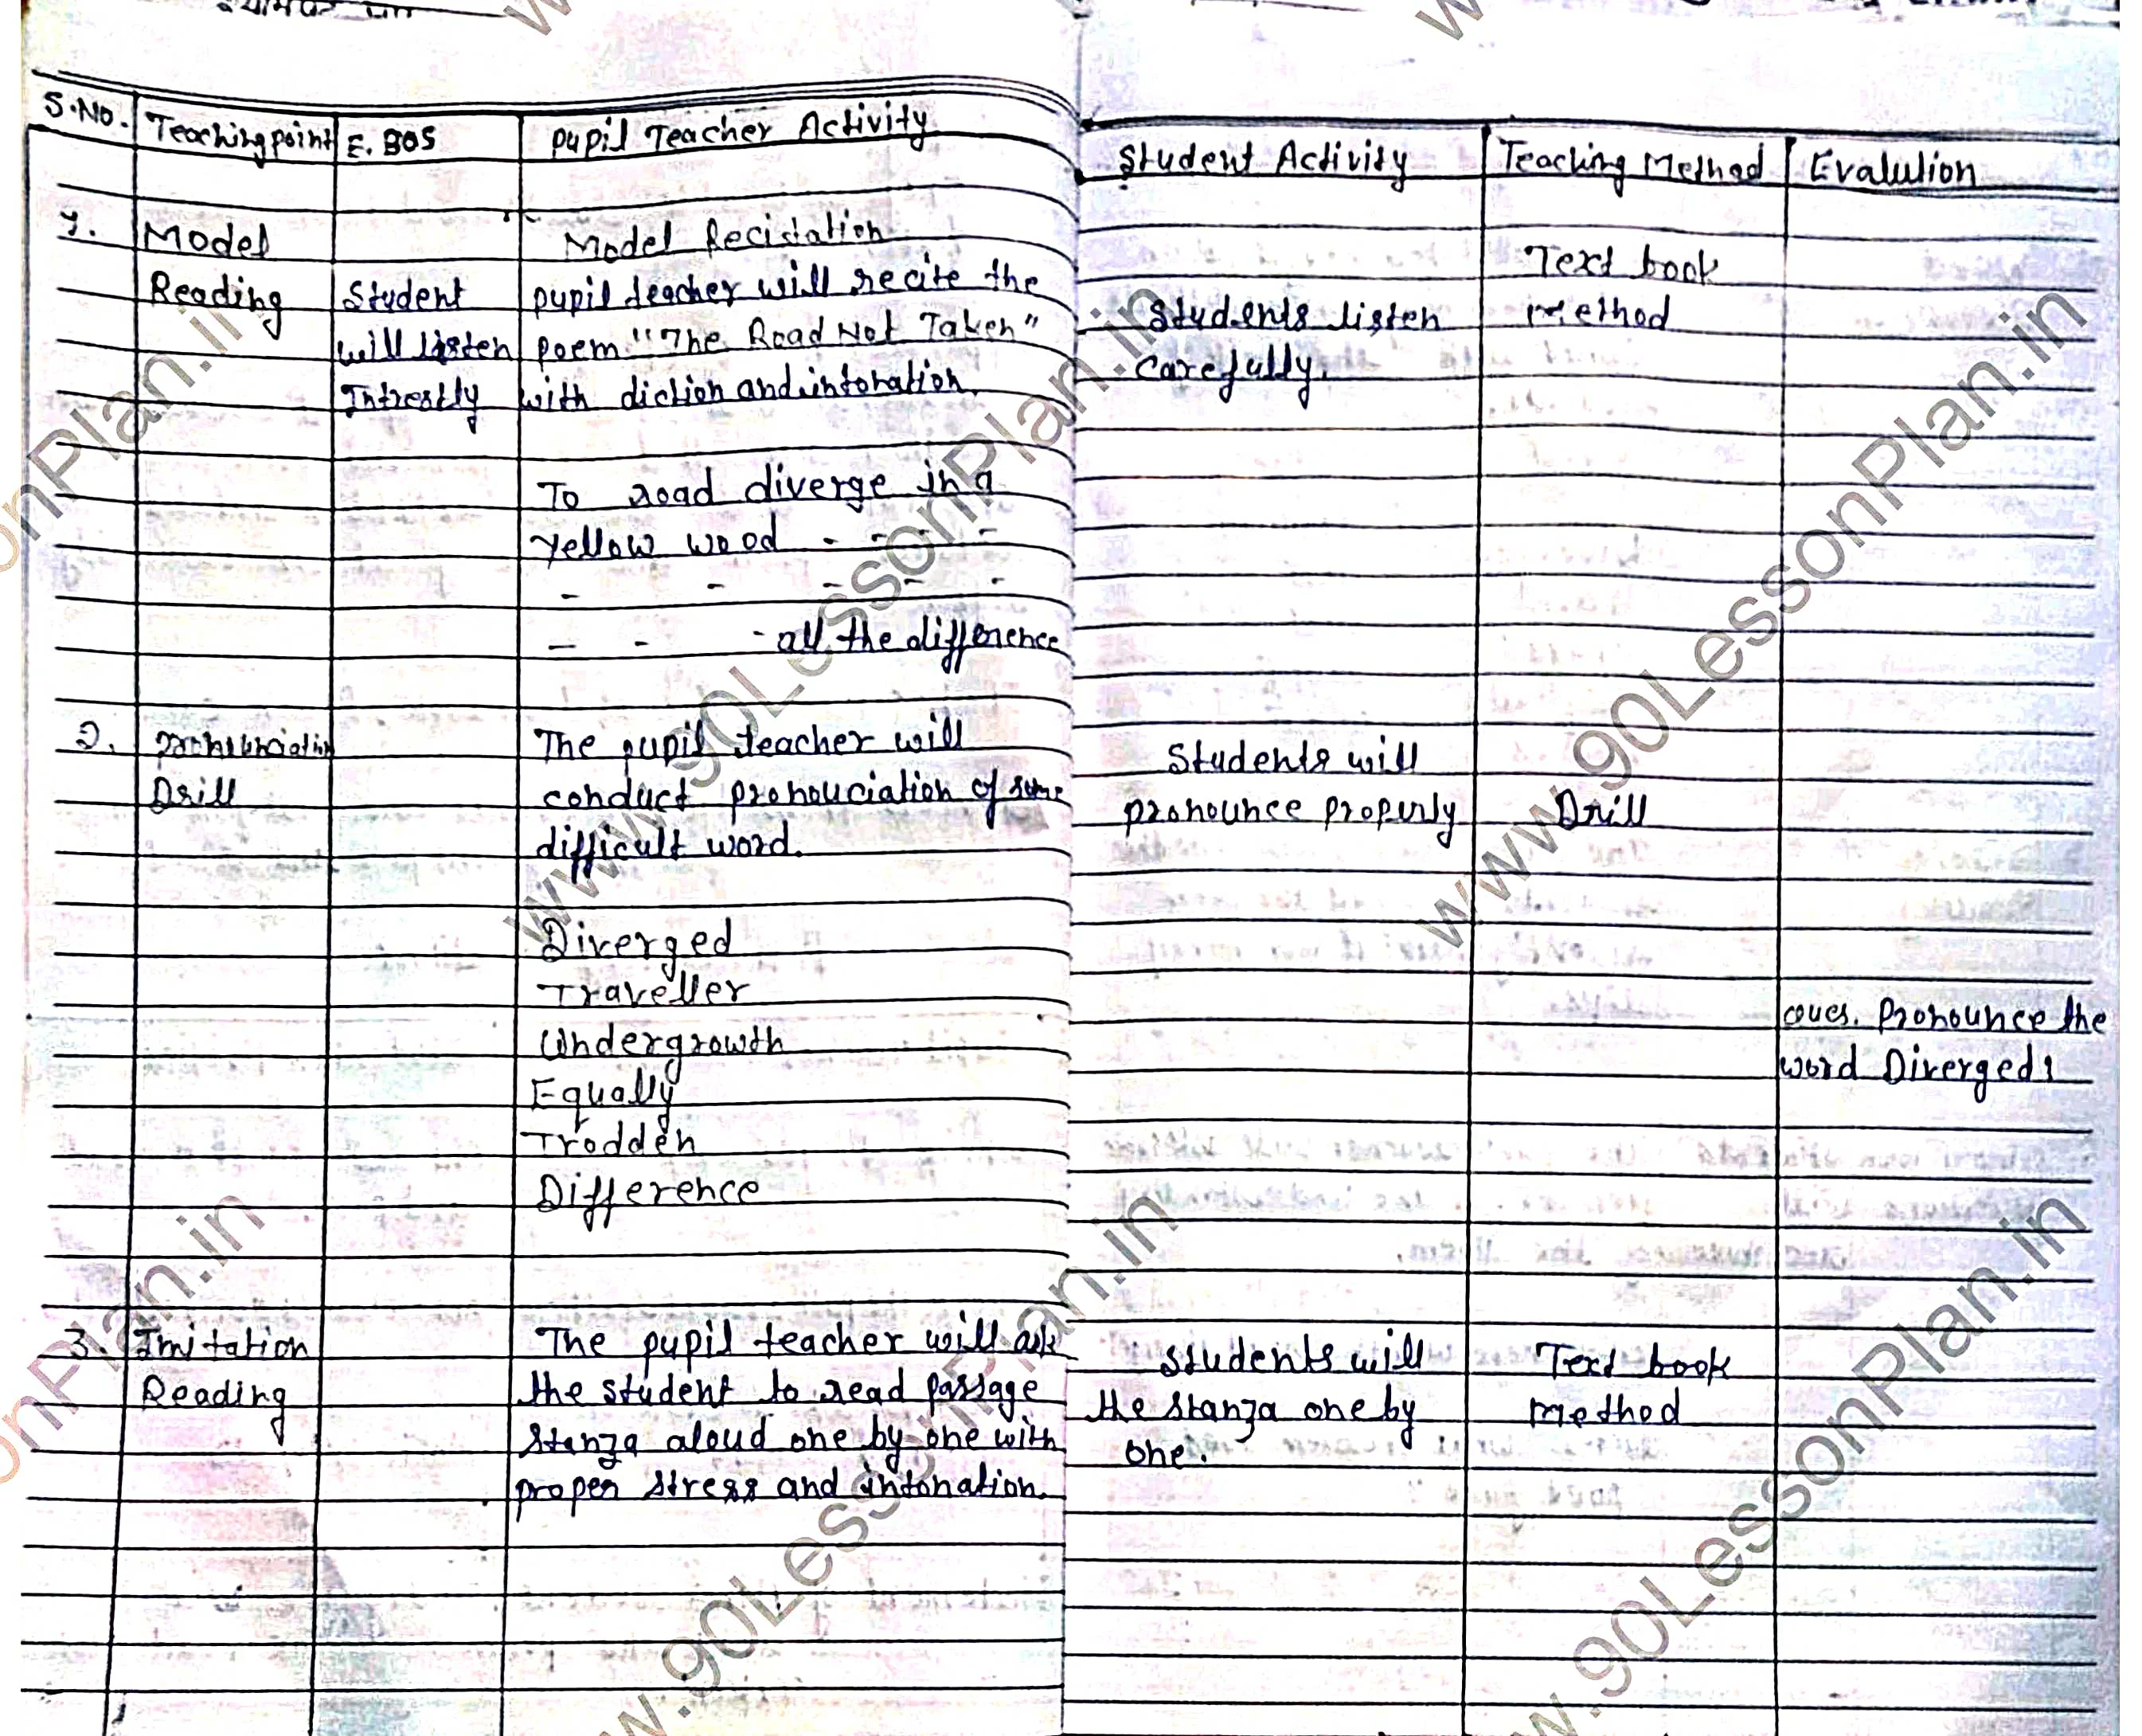 S.No. Teaching point E. BOS Pupil Teacher Activity Student Activity Teaching Method Evalution
1. Model Reading
Student
will listen
Intrestly
Model Recitation
pupil teacher will recite the
poem "The Road Not Taken"
with diction and intonation.
To road diverge in a
yellow wood - - - -
- - - - -
- - - all the difference
Students listen
carefully.
Text book
method
2. Drill
The pupil teacher will
conduct pronouciation of some
difficult word.
Diverged
Traveller
Undergrowth
Equally
Trodden
Difference
Students will
pronounce properly
Drill
Ques. Pronounce the
word Diverged?
3. Imitation
Reading
The pupil teacher will ask
the student to read passage
stanza aloud one by one with
proper stress and intonation.
Students will
the stanza one by
one.
Text book
method
www.90LessonPlan.in
www.90LessonPlan.in